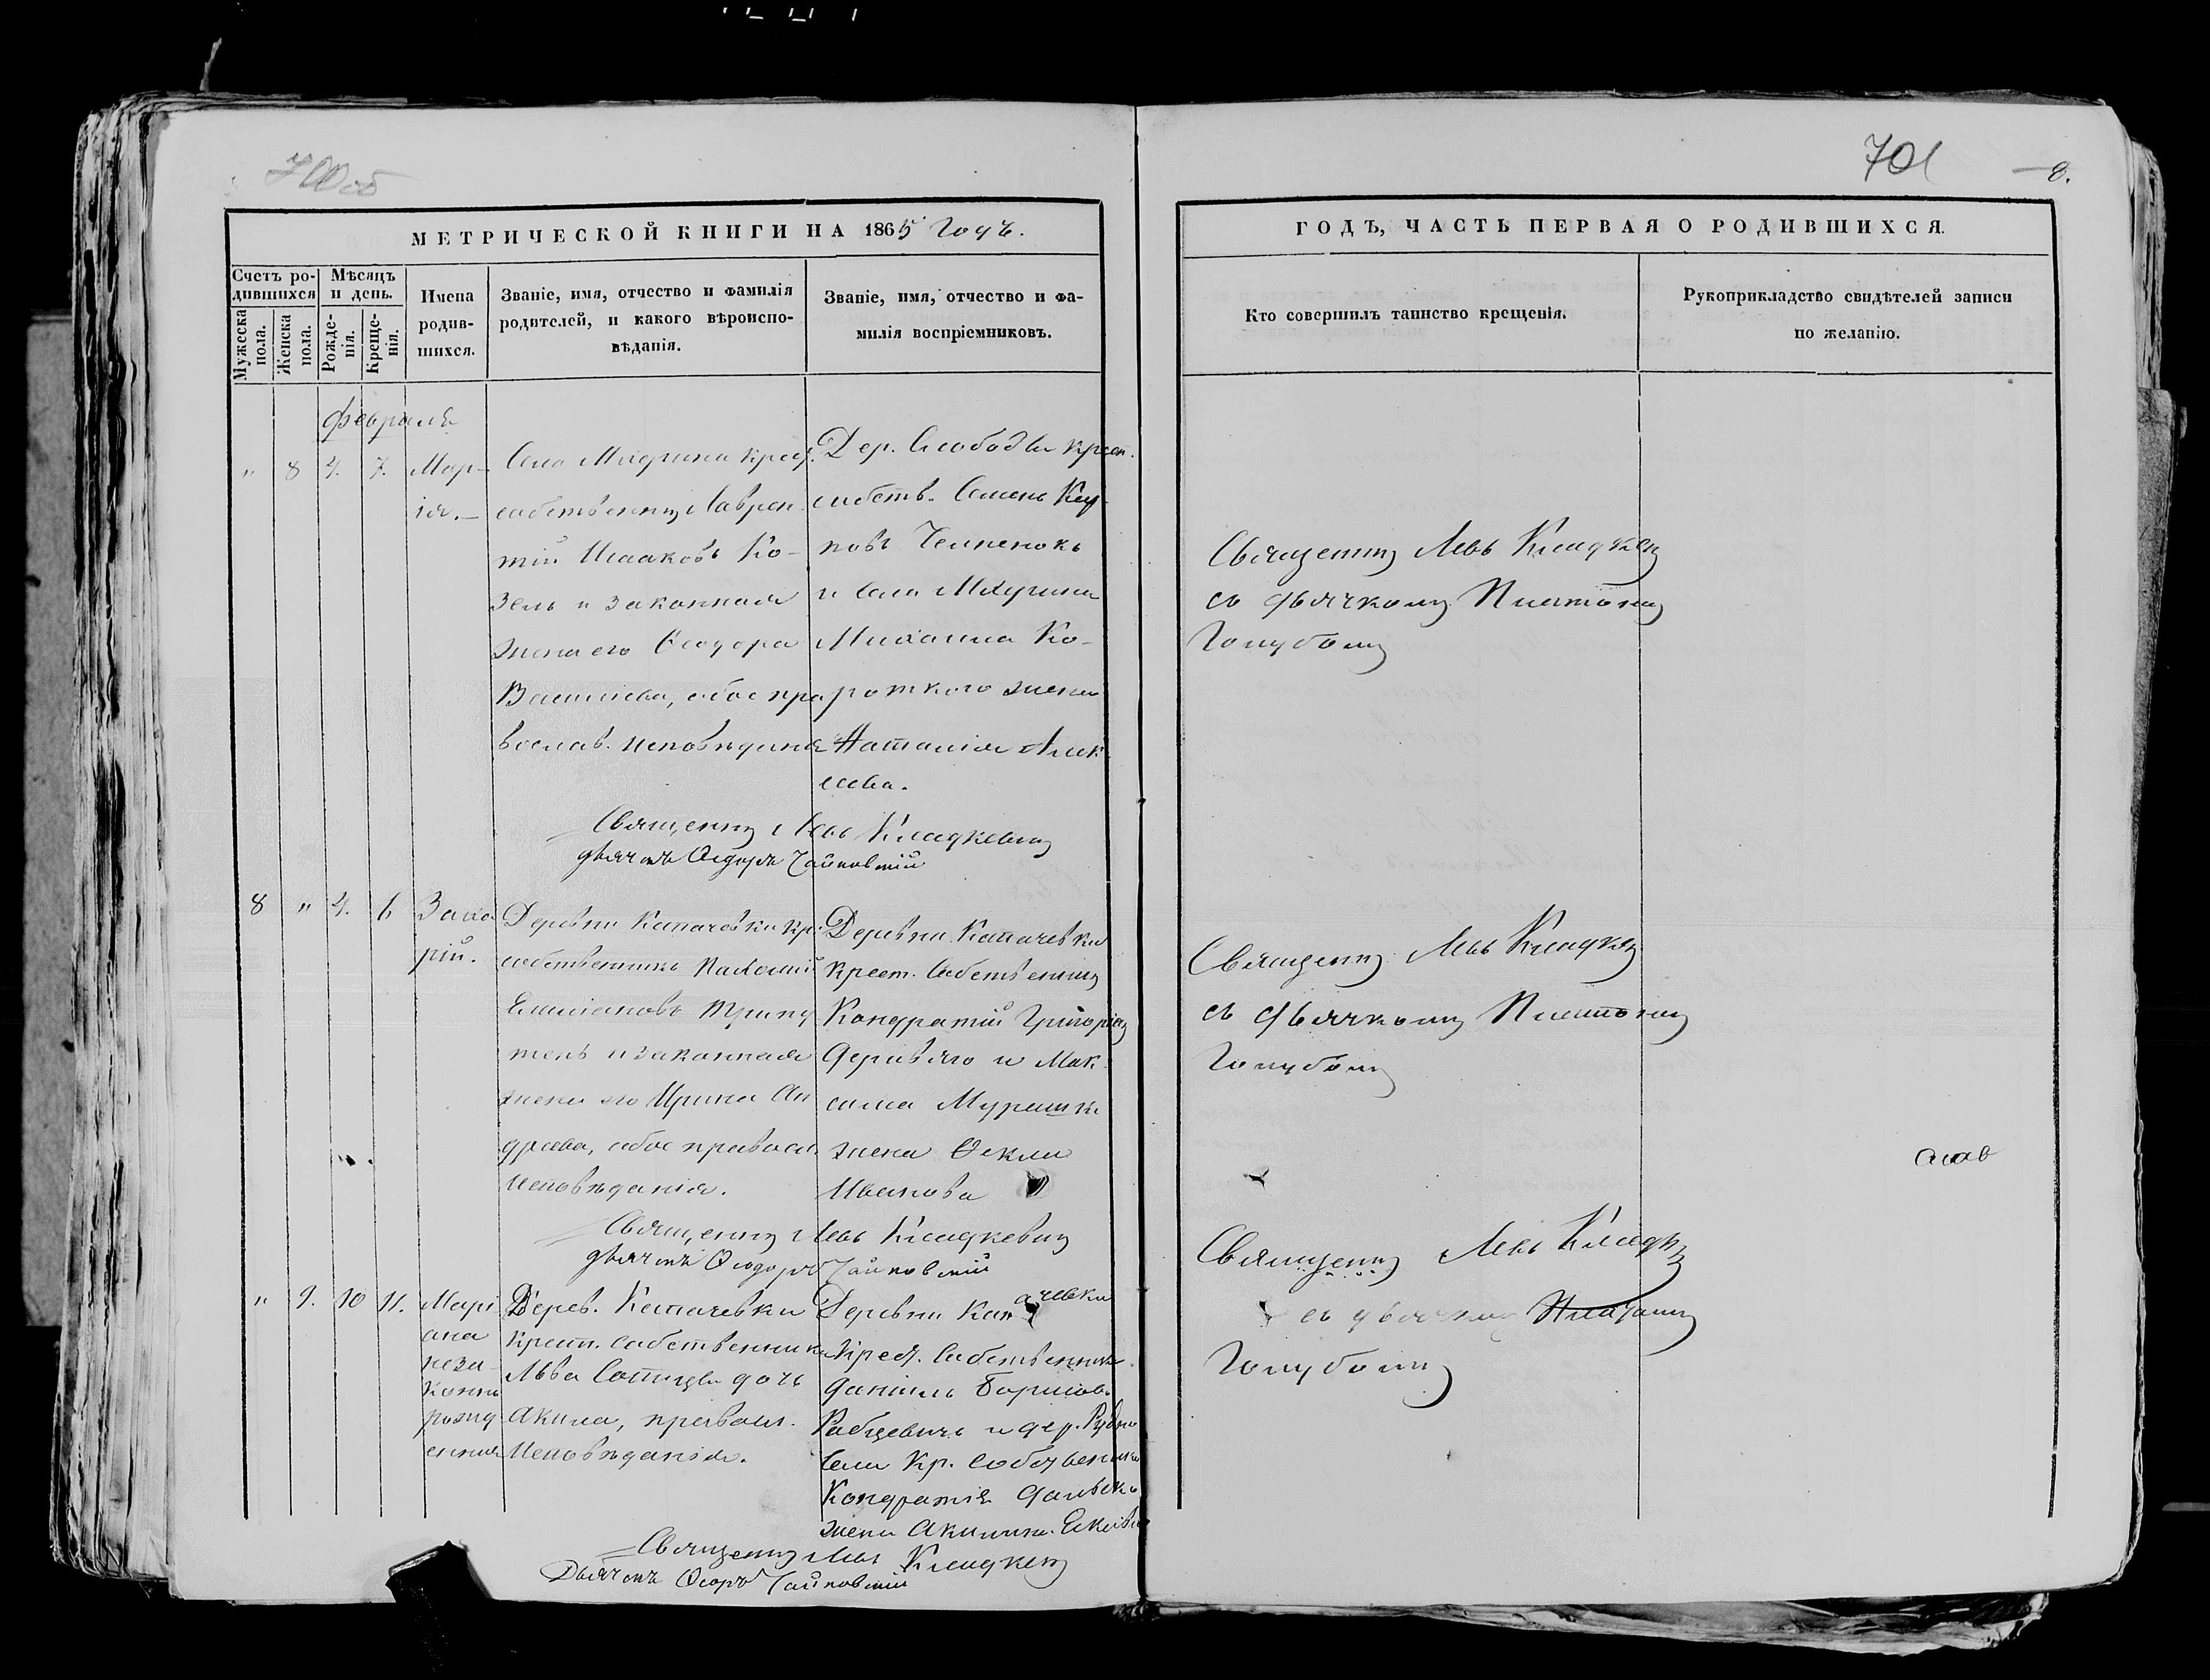 700об
701
8.
МЕТРИЧЕСКОЙ КНИГИ НА 1865 Годъ.
Счетъ ро-
дившихся
Мѣсяцъ
и день.
Мужеска
пола.
Женска
пола.
Рожде-
нія.
Креще-
нія.
Имена
родив-
шихся.
Званіе, имя, отчество и фамилія
родителей, и какого вѣроиспо-
вѣданія.
Званіе, имя, отчество и фа-
милія воспріемниковъ.
Февраля
" 8 4. 7.
Мар-
ія.
Села крест.
собственникъ Лаврен
тій Исааковъ Ко-
зелъ и законная
жена его Ѳеодора
Василіева, обое пра
вослав. исповѣданія
Дер. Слободы крест.
собств. Семенъ
и Села
Михаила Ко-
роткого жена
Наталія Алек
сеева.
Священникъ Левъ Кладкевичъ
дьячекъ Ѳеодоръ Чайковскій
8 " 4. 6
Заха
рій.
Деревни Капачевки кр.
собственникъ Пахомій
законная
жена его Ирина Ан
дреева, обое правосл.
исповѣданія.
Деревни Капачевки
крест. Собственникъ
Кондратій Григоріевъ
и Мак
сима Мурашки
жена Ѳекла
Иванова
Священникъ Левъ Кладкевичъ
дьячекъ Ѳеодоръ Чайковскій
" 9. 10 11.
Марі
ана
неза
конно
рожд
енная
Дерев. Капачевки
крест. собственника
Льва дочь
Акила, правосл.
Исповѣданія.
Деревни Капачевки
Крест. Собственникъ
Даніилъ Борисов.
Рабцевичъ и дер. Рудно
Села Кр. Собственника
Кондратія
жена Акилина
Священникъ Левъ Кладкевичъ
Дьячекъ Ѳеодоръ Чайковскій
ГОДЪ, ЧАСТЬ ПЕРВАЯ О РОДИВШИХСЯ.
Кто совершилъ таинство крещенія.
Рукоприкладство свидѣтелей записи
по желанію.
Священникъ Левъ Кладкев
съ дьячкомъ Платономъ
Голубомъ
Священникъ Левъ Кладкев
съ дьячкомъ Платономъ
Голубомъ
Священникъ Левъ Кладк
съ дьячкомъ Платономъ
Голубомъ